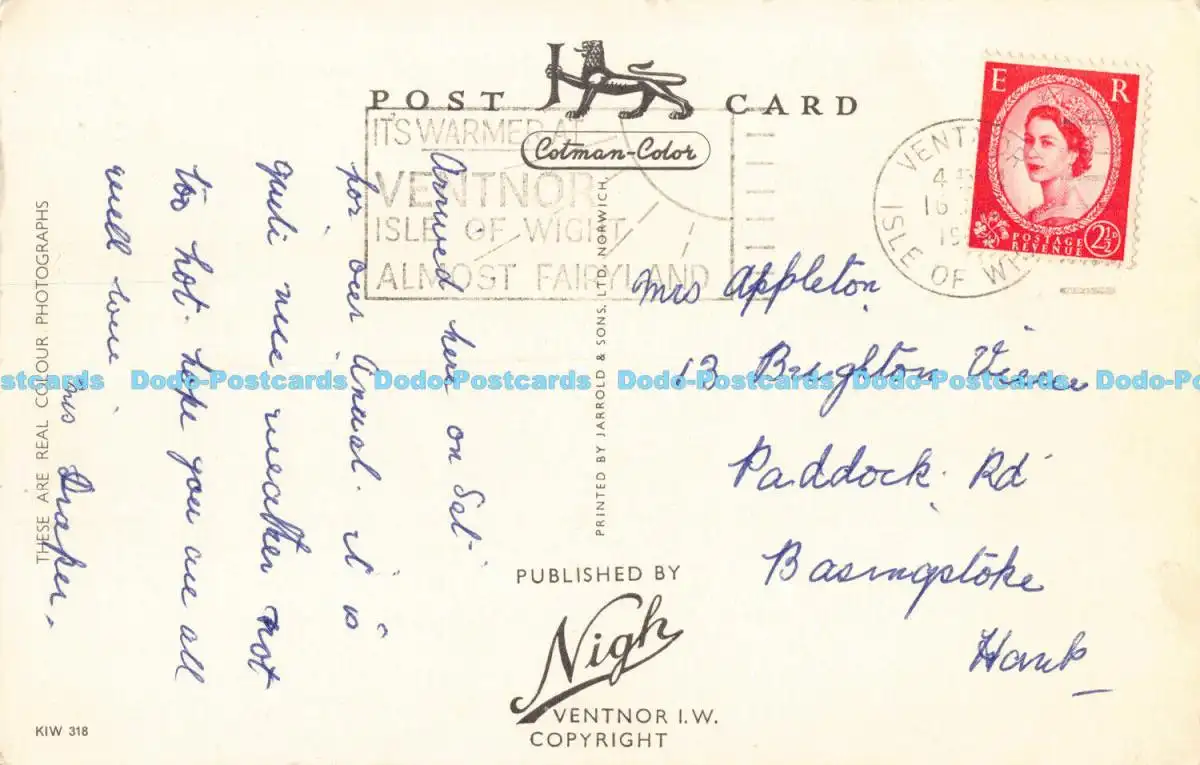 POST CARD
Cotman-Color
E R
POSTAGE
REVENUE
2½D
VENTNOR
ISLE OF
4
16
19
IT'S WARMER AT
VENTNOR
ISLE OF WIGHT
ALMOST FAIRYLAND
Arrived here on Sat
for our anual. it is
quite nice weather not
too hot. hope you are all
well love
Mrs Draper.
Mrs Appleton
13 Brighton
Paddock. Rd
Basingstoke
Hants
PRINTED BY JARROLD & SONS, LTD. NORWICH.
THESE ARE REAL COLOUR PHOTOGRAPHS
PUBLISHED BY
Nigh
VENTNOR I.W.
COPYRIGHT
KIW 318
Dodo-Postcards Dodo-Postcards Dodo-Postcards Dodo-Postcards